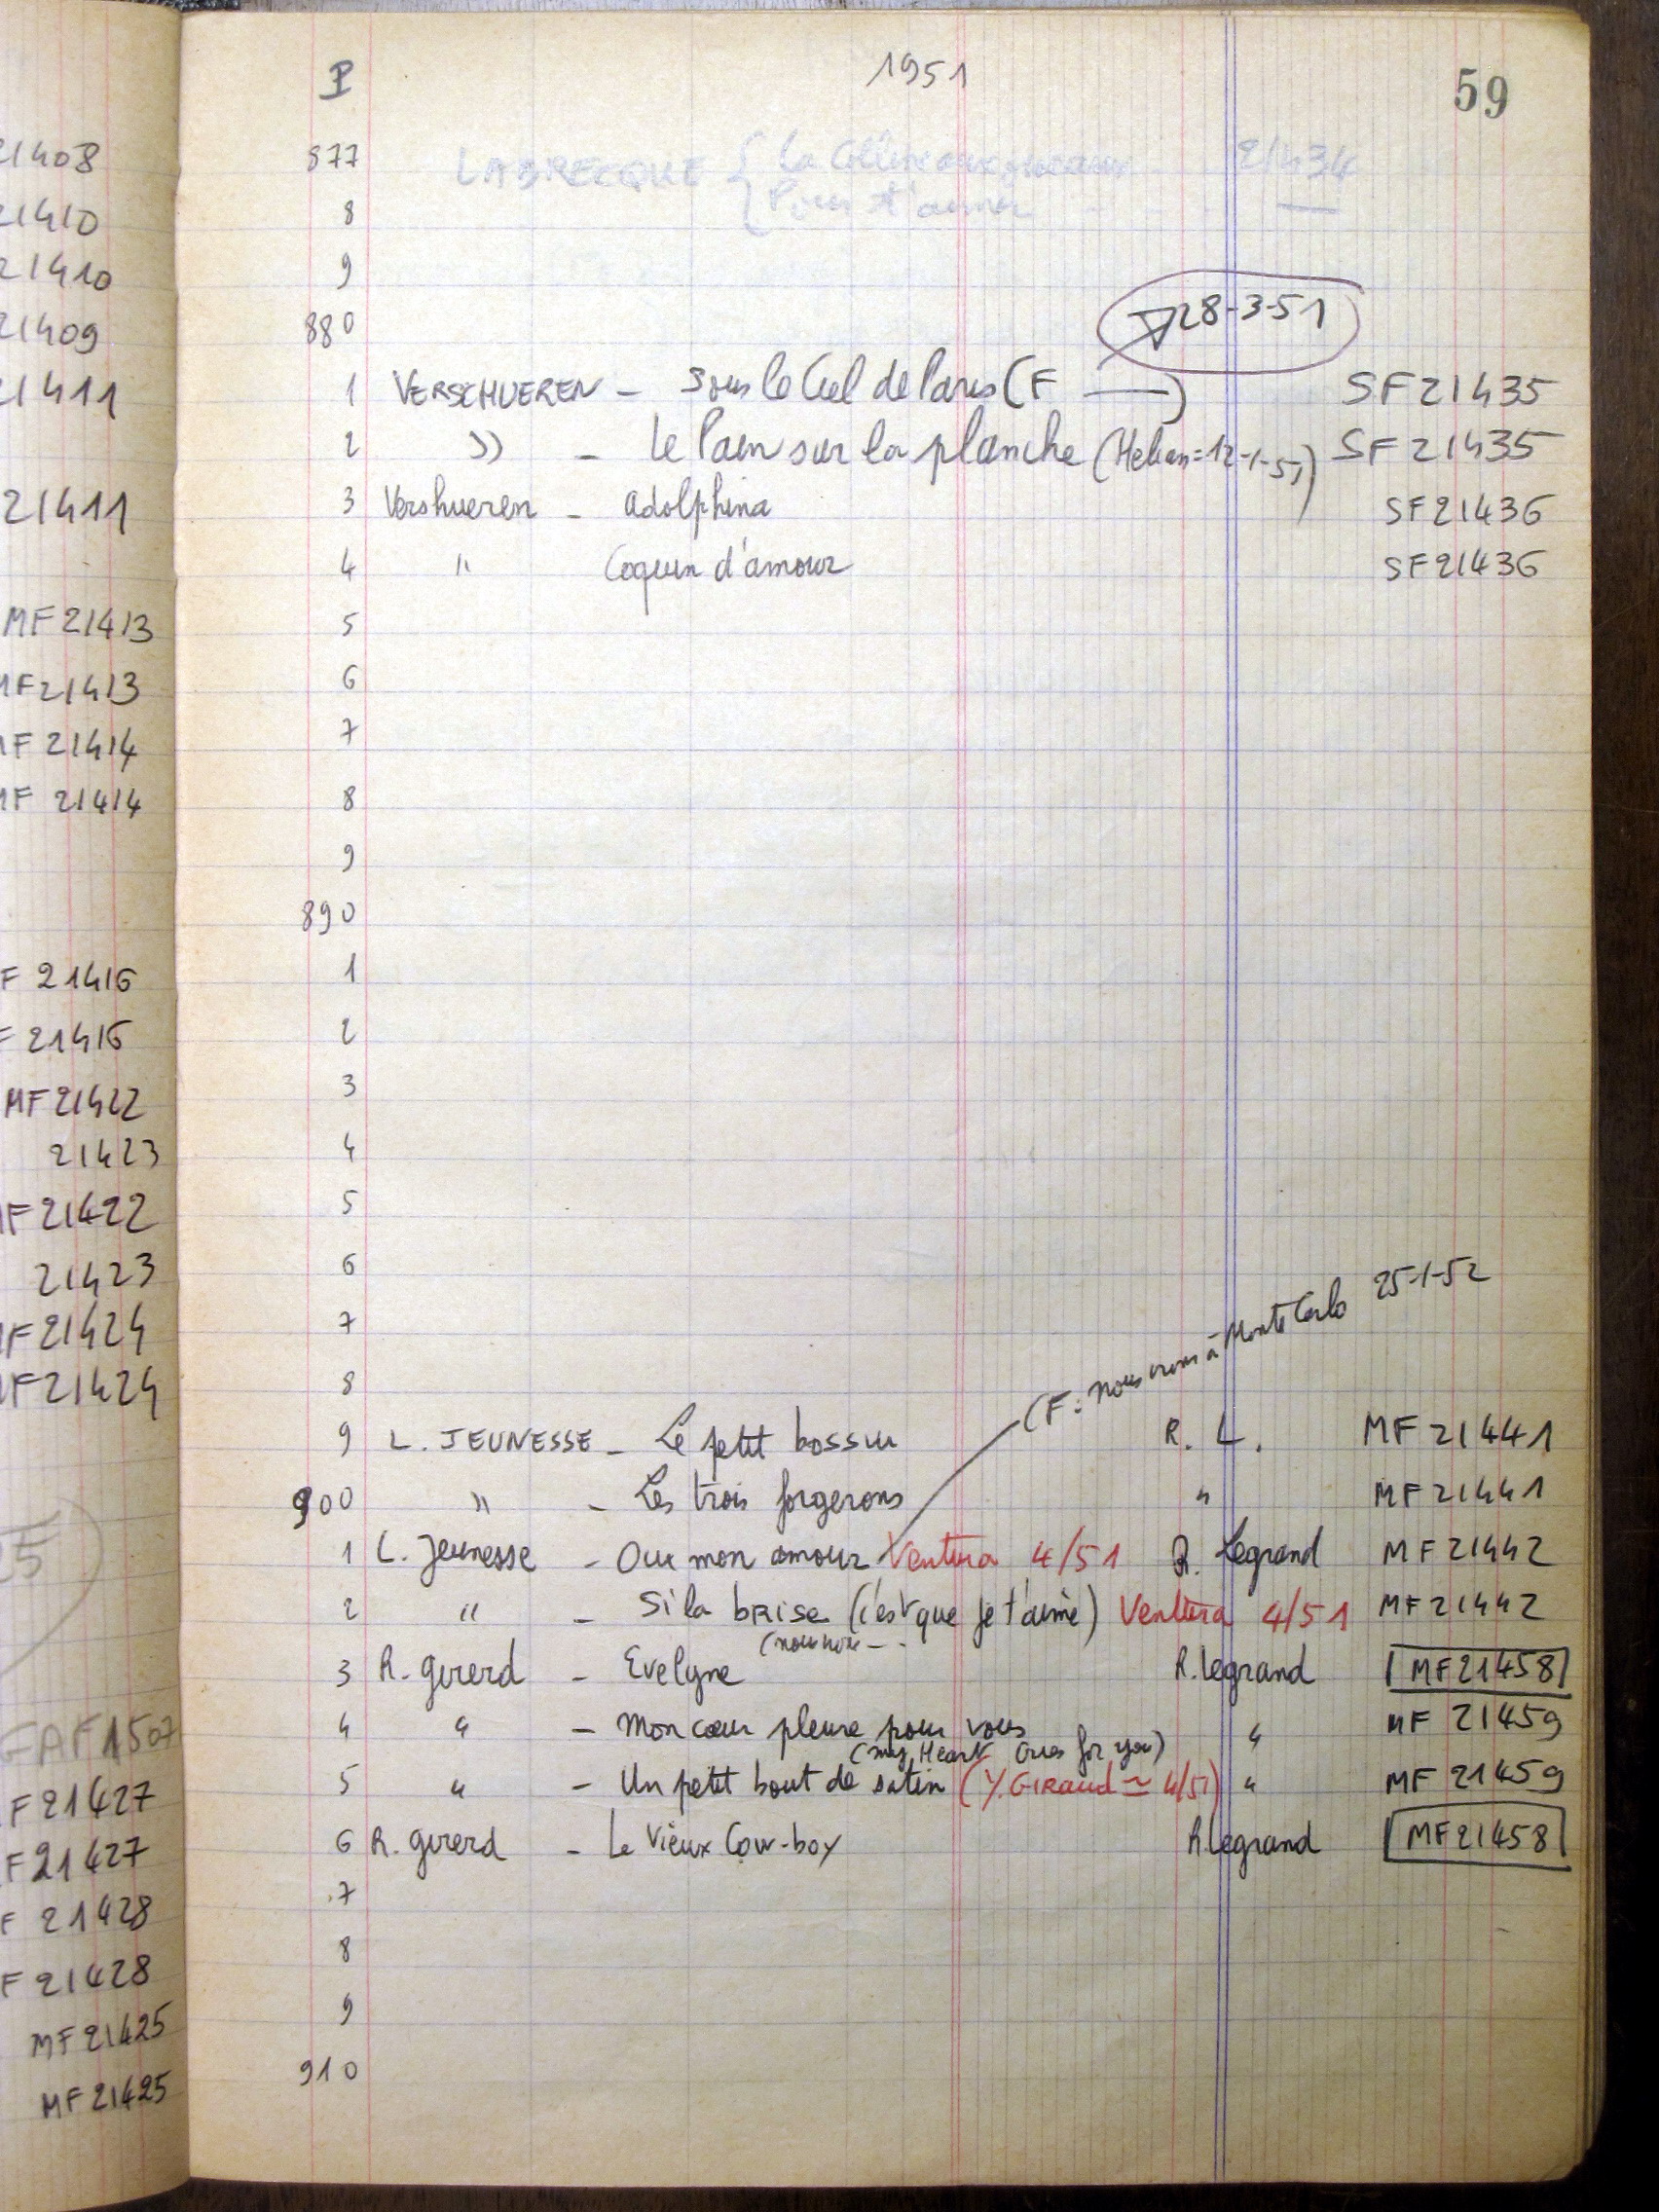 21408
21410
21410
21409
21411
21411
MF21413
MF21413
MF 21414
MF 21414
F 21416
F 21416
MF21422
21423
MF21422
21423
MF21424
MF21424
25
GAF1507
F21427
F21427
F 21428
F 21428
MF21425
MF21425
P 1951 59
877 LABRECQUE { La Colline aux oiseaux 21434
8 Pour t'aimer - - - —
9
880 28-3-51
1 VERSCHUEREN - Sous le Ciel de Paris (F —) SF21435
2 " - Le Pain sur la planche (Hélian=12-1-51) SF21435
3 Vershueren - Adolphina SF21436
4 " Coquin d'amour SF21436
5
6
7
8
9
890
1
2
3
4
5
6
7
8
(F: nous irons à Monte Carlo 25-1-52
9 L. JEUNESSE - Le petit bossu R. L. MF21441
900 " - Les trois forgerons " MF21441
1 L. Jeunesse - Oui mon amour Ventura 4/51 R. Legrand MF21442
2 " - Si la brise (c'est que je t'aime) Ventura 4/51 MF21442
3 R. girerd - Evelyne R. legrand MF21458
4 " - Mon cœur pleure pour vous " MF 21459
(my Heart Cries for you)
5 " - Un petit bout de satin (Y. GIRAUD ~ 4/51) " MF 21459
6 R. girerd - Le Vieux Cow-boy R. legrand MF21458
7
8
9
910